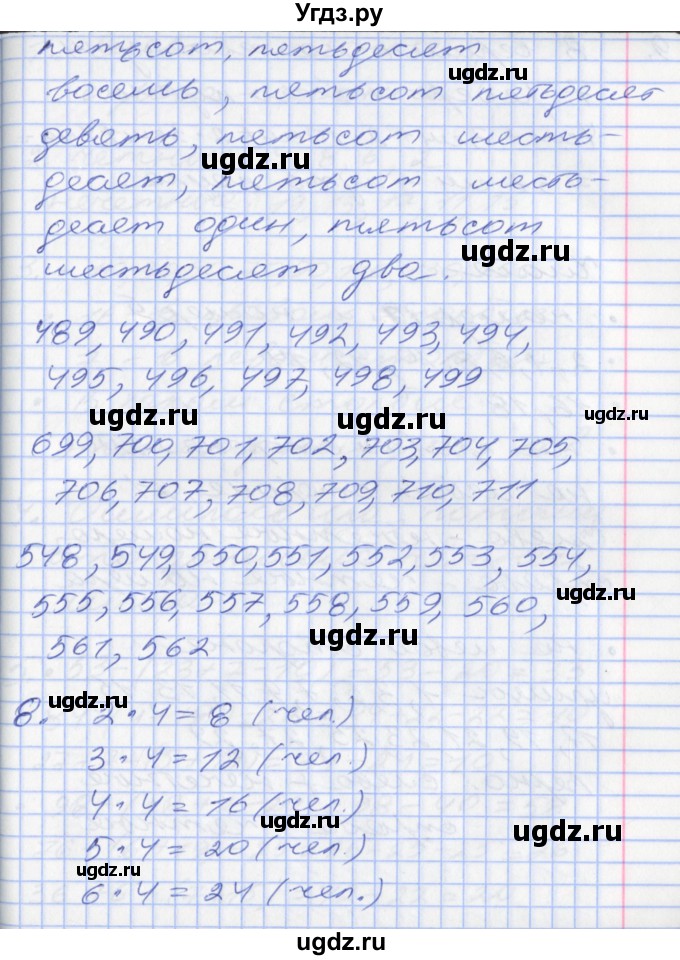 Угдз.ру
пятьсот, пятьдесят
восемь, пятьсот пятьдесят
ugdz.ru
девять, пятьсот шесть-
ugdz.ru
десят, пятьсот шесть-
десят один, пятьсот
ugdz.ru
шестьдесят два.
489, 490, 491, 492, 493, 494,
495, 496, 497, 498, 499
ugdz.ru ugdz.ru ugdz.ru
699, 700, 701, 702, 703, 704, 705,
706, 707, 708, 709, 710, 711
548, 549, 550, 551, 552, 553, 554,
ugdz.ru
555, 556, 557, 558, 559, 560,
ugdz.ru
561, 562
ugdz.ru
8. 2 · 4 = 8 (чел.)
3 · 4 = 12 (чел.)
4 · 4 = 16 (чел.)
ugdz.ru ugdz.ru
5 · 4 = 20 (чел.)
ugdz.ru
6 · 4 = 24 (чел.)
ugdz.ru